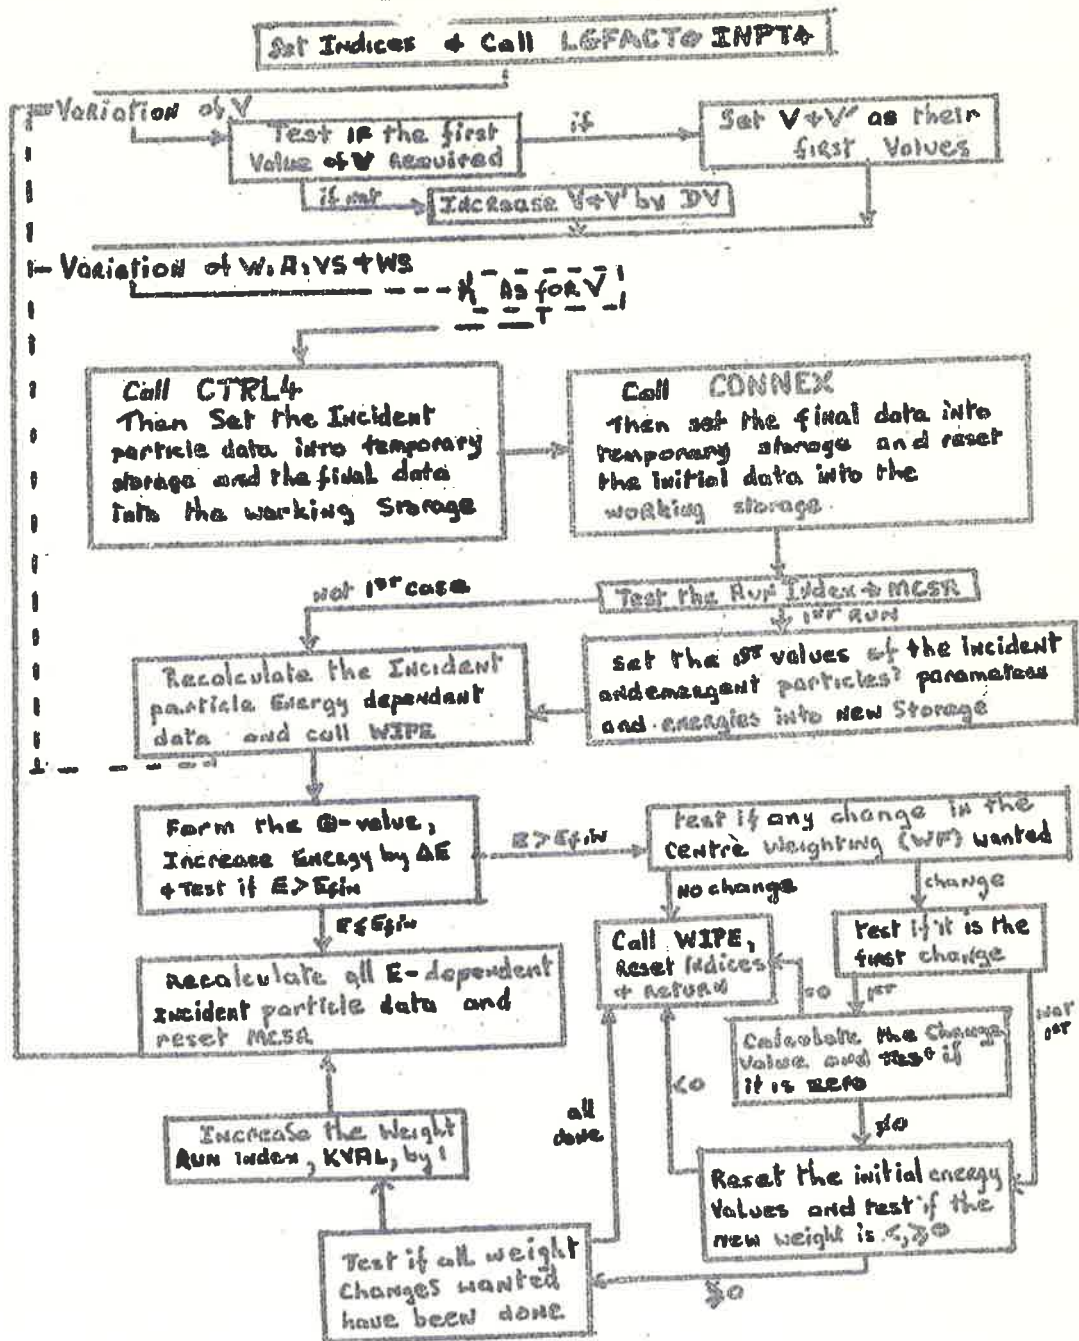 Set Indices & Call LGFACT@ INPT4
Variation of V
Test IF the first
Value of V Required
if
Set V+V' as their
first Values
if not
Increase V+V' by DV
Variation of W, A, VS + WS
As for V
Call CTRL4
Then Set the Incident
particle data into temporary
storage and the final data
Into the working Storage
Call CONNEX
Then set the final data into
temporary storage and reset
the initial data into the
working storage.
Not 1st case
Test the Run Index + MCSR
1st RUN
Recalculate the Incident
particle Energy dependent
data and call WIPE
Set the 1st values of the incident
and emergent particles' parameters
and energies into New Storage
Form the Q-value,
Increase Energy by ΔE
& Test if E > Efin
E > Efin
Test if any change in the
Centre Weighting (WF) wanted
E ≤ Efin
No change
change
Call WIPE,
Reset Indices
+ Return
Test if it is the
first change
Recalculate all E-dependent
Incident particle data and
reset MCSR
=0
1st
Not
1st
Calculate the Change
Value and Test if
it is zero
<0
≠0
all
done
Increase the Weight
Run index, KVAL, by 1
Reset the initial energy
Values and test if the
new weight is <, ≥ 0
Test if all weight
Changes wanted
have been done
≥0